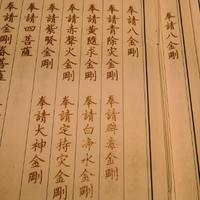 奉請八金剛
奉請八金剛
奉請青除災金剛
奉請辟毒金剛
奉請黃隨求金剛
奉請白淨水金剛
奉請赤聲火金剛
奉請定持災金剛
奉請紫賢金剛
奉請大神金剛
奉請四菩薩
奉請金剛